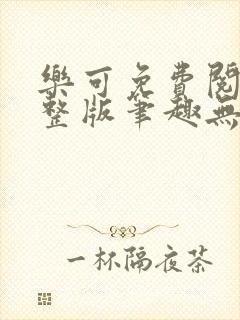 樂可免費閱
整版筆趣無
一杯隔夜茶